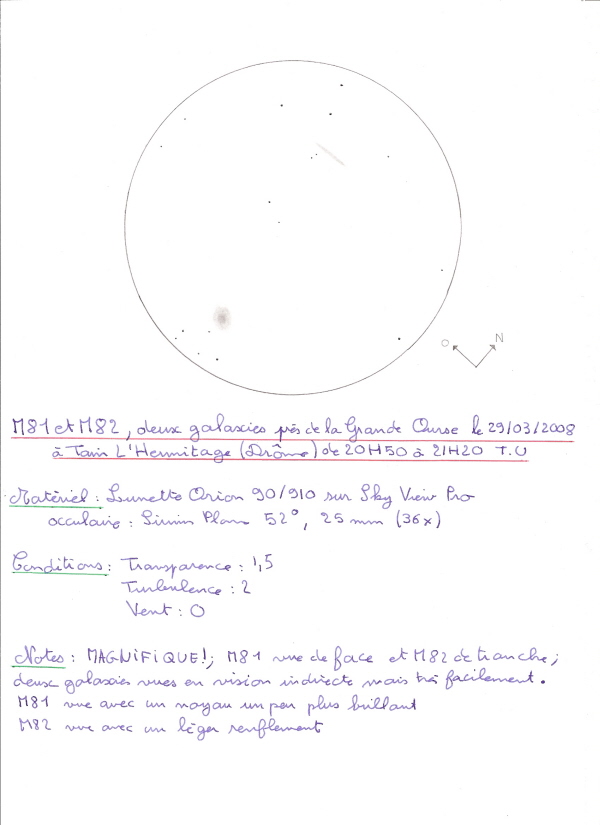 O N
M81 et M82, deux galaxies près de la Grande Ourse le 29/03/2008
à Tain L'Hermitage (Drôme) de 20H50 à 21H20 T.U
Matériel : Lunette Orion 90/910 sur Sky View Pro
occulaire : Sirius Plan 52°, 25 mm (36x)
Conditions : Transparence : 1,5
Turbulence : 2
Vent : 0
Notes : MAGNIFIQUE!; M81 vue de face et M82 de tranche;
deux galaxies vues en vision indirecte mais très facilement.
M81 vue avec un noyau un peu plus brillant
M82 vue avec un léger renflement